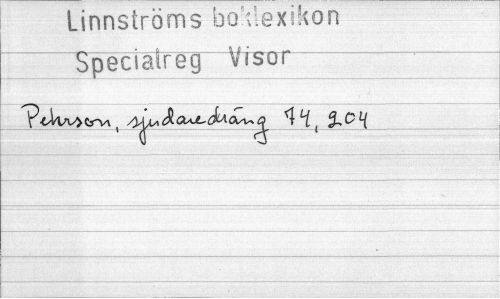 Linnströms boklexikon
Specialreg Visor
Pehrson, sjudaredräng 74, 204